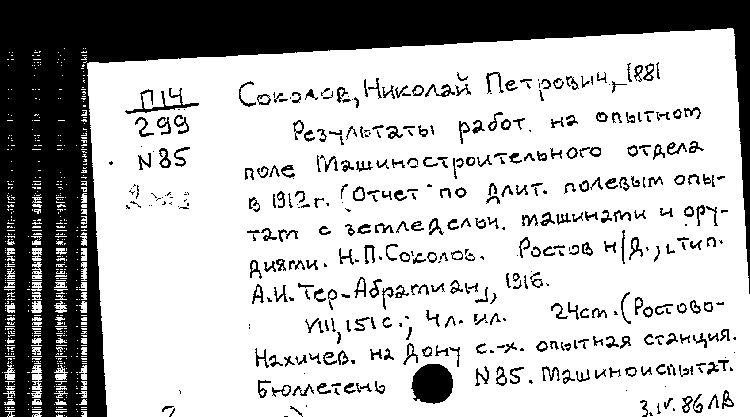 П14
299
N85
Соколов, Николай Петрович, 1881
Результаты работ на опытном
поле Машиностроительного отдела
в 1912 г. (Отчет по длит. полевым опы-
там с земледельч. машинами и ору-
диями. Н.П. Соколов. Ростов н/Д., тип.
А.И. Тер-Абрамиан, 1916.
VIII, 151 с.; 4 л. ил. 24 cm. (Ростово-
Нахичев. на Дону с.-х. опытная станция.
Бюллетень N85. Машиноиспытат.
3.IV.86 ЛВ